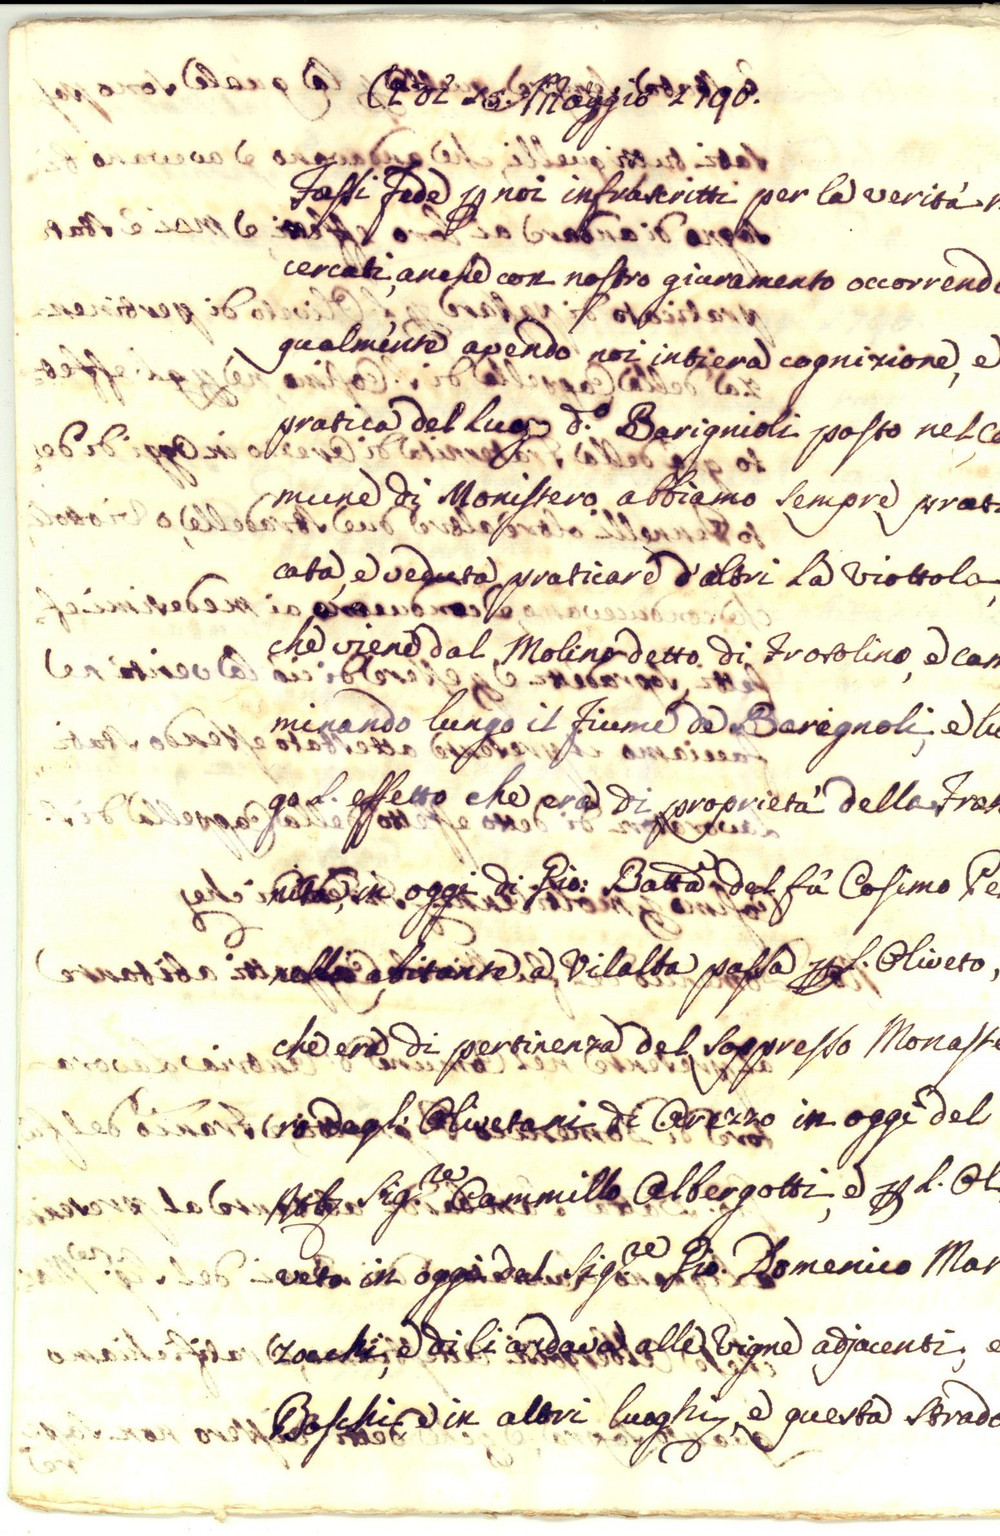 A dì 25. Maggio 1790.
Fassi Fede p noi infrascritti per la verità r
cercati, anche con nostro giuramento occorrend
qualmente avendo noi intiera cognizione, e
pratica del Luogo d.º Barignioli posto nel Co
mune di Monistero abbiamo sempre prati
cata, e veduta praticare d'altri la Viottola,
che viene dal Molino detto di Frosolino, e cam
minando lungo il Fiume de Baregnoli, e lu
go l. effetto che era di proprietà della Frater
nita, in oggi di Gio: Batta del fù Cosimo Pe
nelli abitante a Vilalba passa p l. Oliveto,
che era di pertinenza del soppresso Monaste
ro degli Olivetani di Arezzo in oggi del
Nob. Sig.re Cammillo Albergotti, e p l. Oli
veto in oggi del Sig.re Gio. Domenico Mar
zocchi, e di lì andava alle Vigne adjacenti, e
Boschi, e in altri luoghi, e questa strada